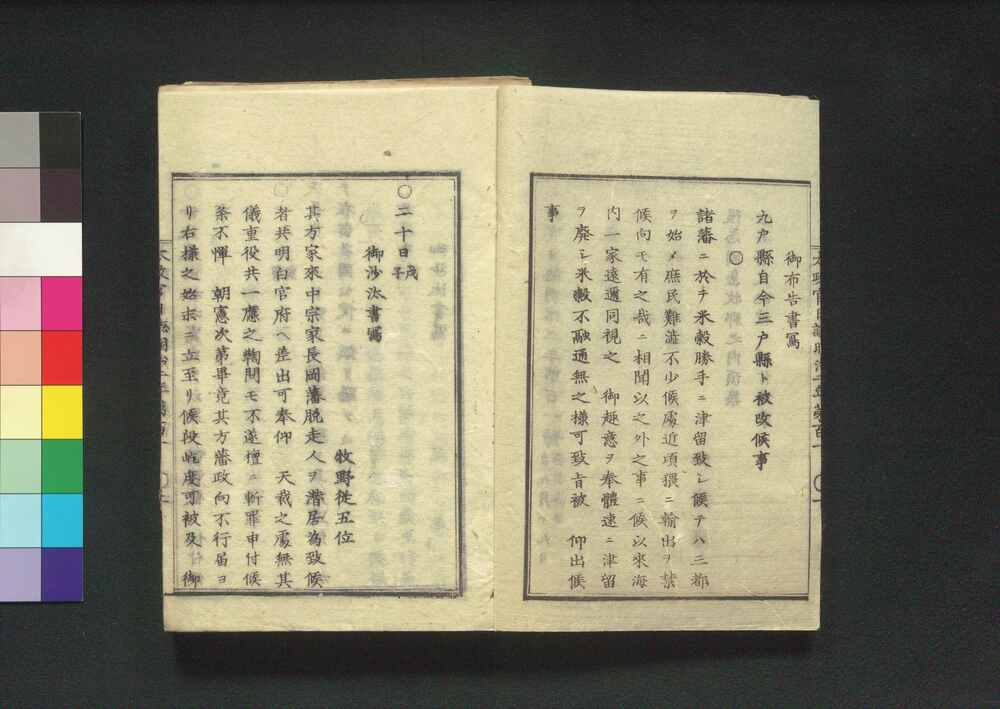 御布告書寫
九戸縣自今三戸縣ト被改候事
○
諸藩ニ於テ米穀勝手ニ津留致シ候テハ三都
ヲ始メ庶民難澁不少候處近頃猥ニ輸出ヲ禁
候向モ有之哉ニ相聞以之外之事ニ候以來海
内一家遠邇同視之 御趣意ヲ奉體速ニ津留
ヲ廢シ米穀不融通無之様可致旨被 仰出候
事
○二十日戊子
御沙汰書寫
牧野従五位
其方家來中宗家長岡藩脱走人ヲ潜居為致候
者共明白官府ヘ差出可奉仰 天裁之處無其
儀重役共一應之鞫問モ不遂擅ニ斬罪申付候
条不憚 朝憲次第畢竟其方藩政向不行届ヨ
リ右様之始末ニ立至リ候段屹度可被及 御